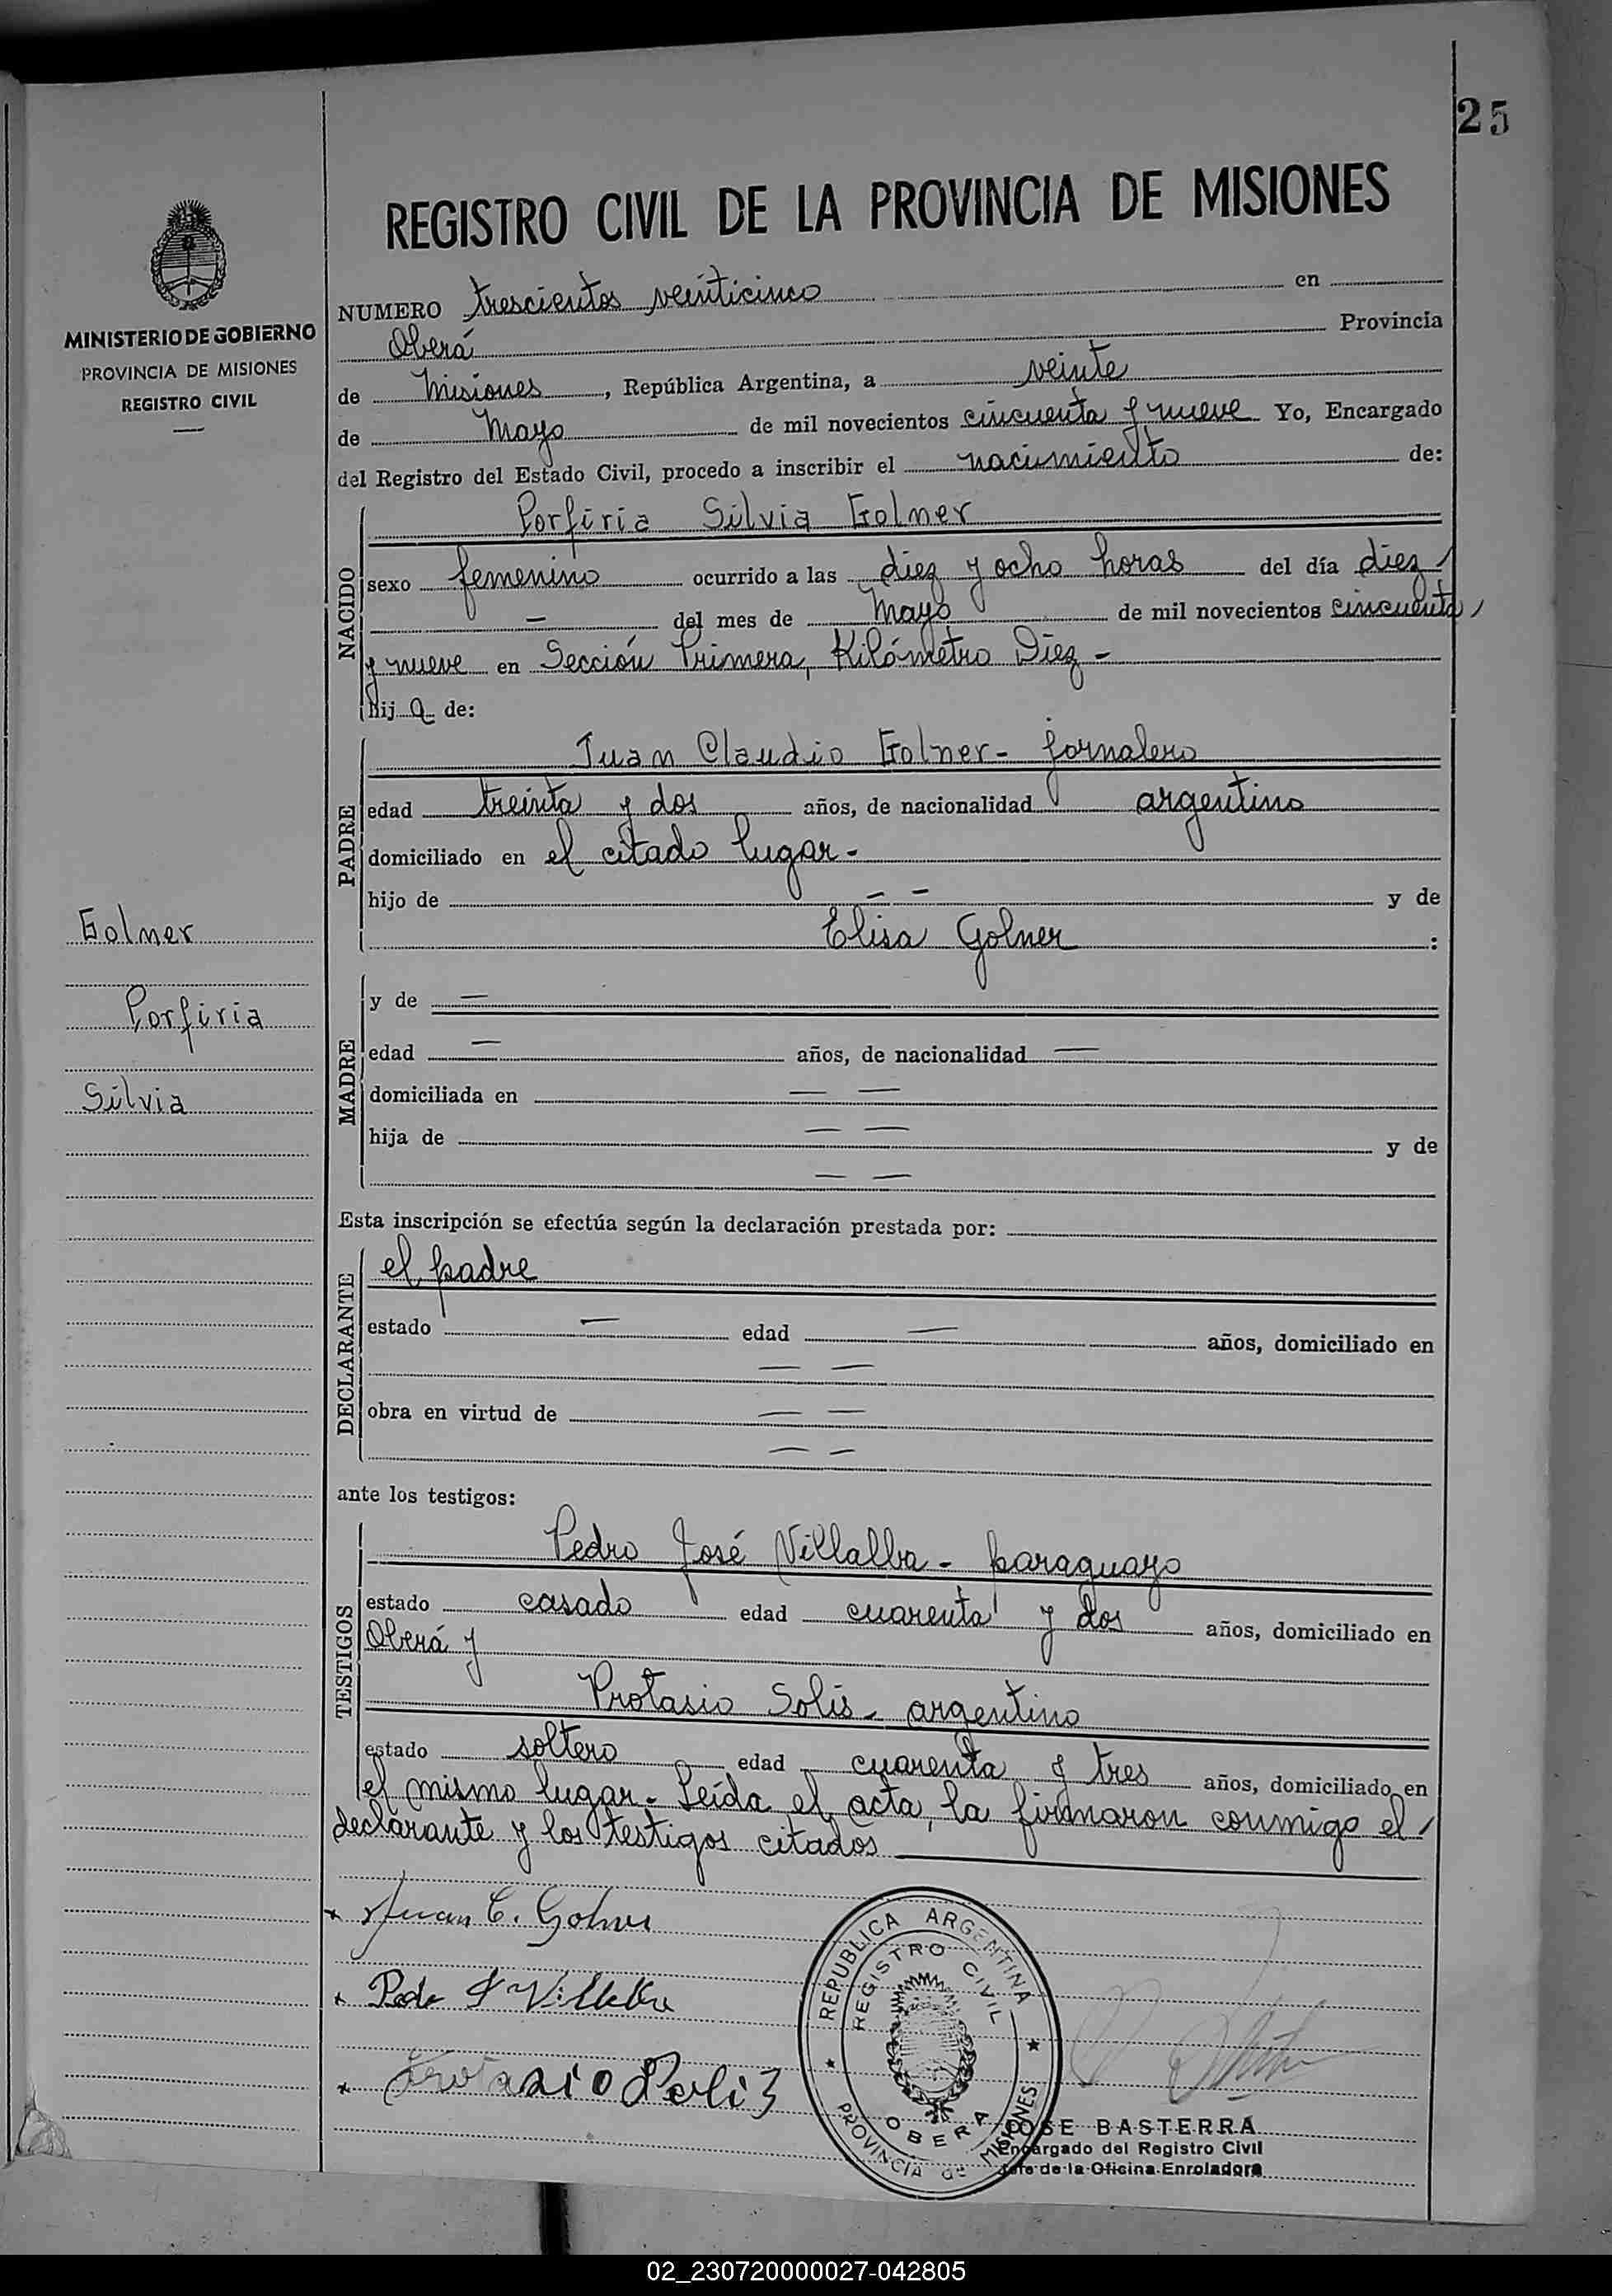 25
REGISTRO CIVIL DE LA PROVINCIA DE MISIONES
MINISTERIO DE GOBIERNO
PROVINCIA DE MISIONES
REGISTRO CIVIL
NUMERO trescientos veinticinco en
Oberá Provincia
de Misiones, República Argentina, a veinte
de Mayo de mil novecientos cincuenta y nueve Yo, Encargado
del Registro del Estado Civil, procedo a inscribir el nacimiento de:
NACIDO
Porfiria Silvia Golner
sexo femenino ocurrido a las diez y ocho horas del día diez
— del mes de Mayo de mil novecientos cincuenta
y nueve en Sección Primera, Kilómetro Diez -
hij a de:
PADRE
Juan Claudio Golner - jornalero
edad treinta y dos años, de nacionalidad argentino
domiciliado en el citado lugar -
hijo de — — y de
Elisa Golner :
Golner
Porfiria
Silvia
MADRE
y de —
edad — años, de nacionalidad —
domiciliada en — —
hija de — — y de
— —
Esta inscripción se efectúa según la declaración prestada por:
DECLARANTE
el padre
estado — edad — años, domiciliado en
— —
obra en virtud de — —
— —
ante los testigos:
TESTIGOS
Pedro José Villalba - paraguayo
estado casado edad cuarenta y dos años, domiciliado en
Oberá y
Protasio Solis - argentino
estado soltero edad cuarenta y tres años, domiciliado en
el mismo lugar - Leída el acta, la firmaron conmigo el
declarante y los testigos citados
Juan C. Golner
Pedro J Villalba
Protasio Solis
REPUBLICA ARGENTINA
REGISTRO CIVIL
OBERA
PROVINCIA de MISIONES
JOSE BASTERRA
Encargado del Registro Civil
Jefe de la Oficina Enroladora
02_230720000027-042805